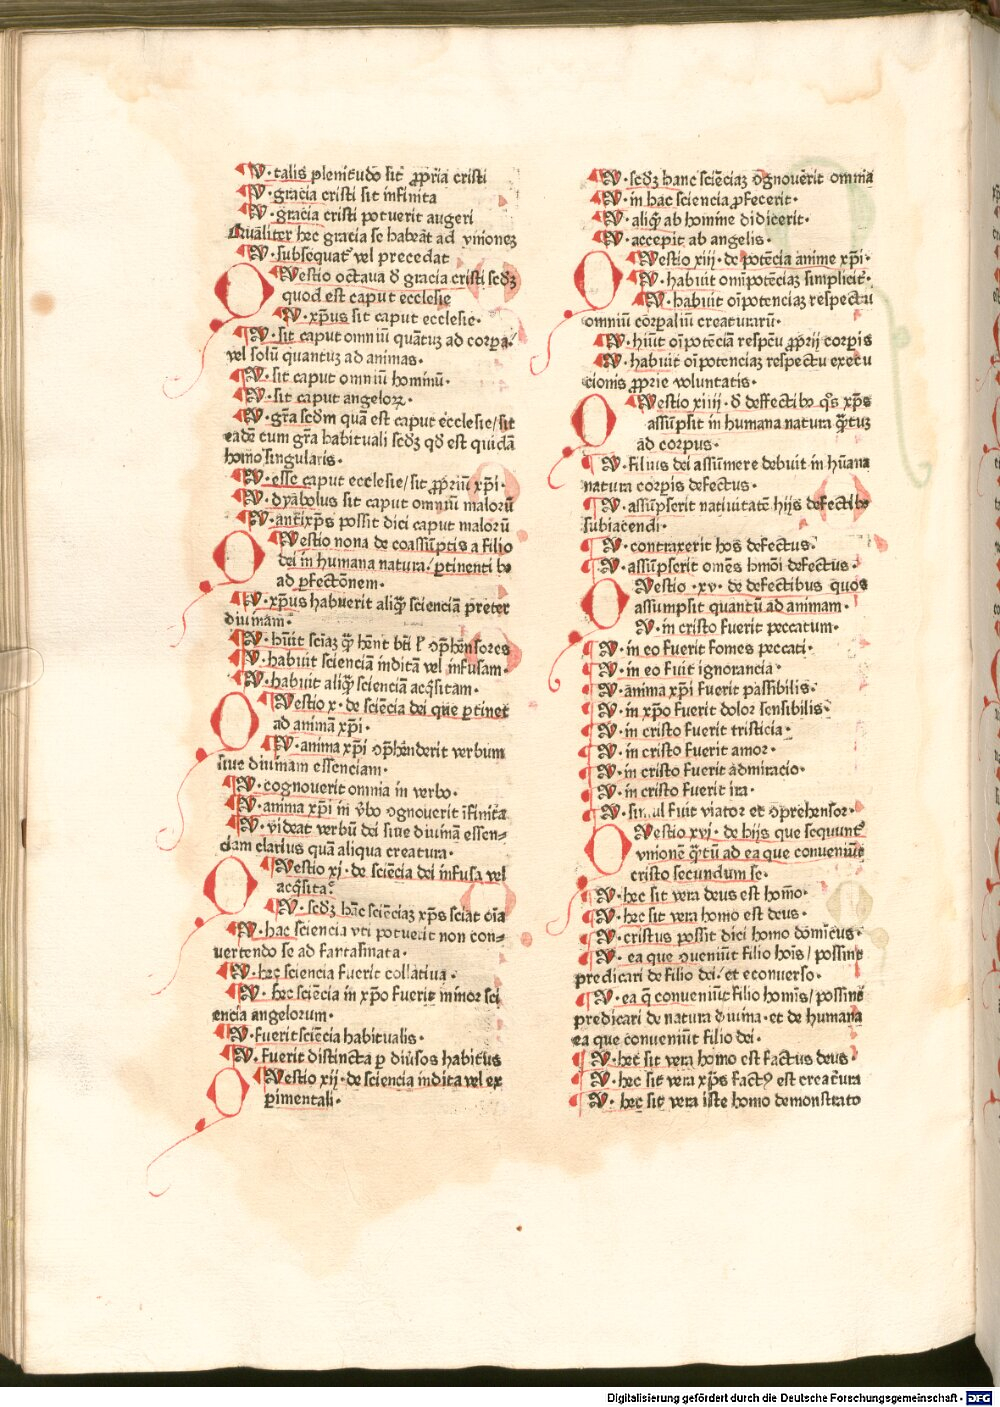 V·talis plenitudo sit ꝓpria cristi
V·gracia cristi sit infinita
V·gracia cristi potuerit augeri
Qualiter hec gracia se habeāt ad vnionez
V·subsequat᷑ vel precedat
QVestio octaua ꝺ gracia cristi scdꝫ
quod est caput ecclesie
V·xp̄us sit caput ecclesie·
V·sit caput omniū quātuꝫ ad corpa.
vel solū quantuꝫ ad animas·
V·sit caput omniū hominū·
V·sit caput angeloꝝ·
V·gr̄a scd̄m quā est caput ecclesie/sit
eadē cum gr̄a habituali scdꝫ qd̄ est quidā
homo singularis·
V·esse caput ecclesie/sit ꝓpriū xp̄i·
V·dyabolus sit caput omniū malorū
V·antixp̄s possit dici caput malorū
QVestio nona de coassūptis a filio
dei in humana natura. ꝑtinenti bꝰ
ad ꝑfectōnem·
V·xp̄us habuerit aliq̄ꝫ scienciā preter
diuinam·
V·hūit sciaꝫ q̄ꝫ hent bt̄i ł ꝯp̄hēnsores
V·habuit scienciā inditā vel infusam·
V·habuit aliq̄ꝫ scienciā acq̄sitam·
QVestio x·de sciēcia dei que ꝑtinet
ad animā xp̄i·
V·anima xp̄i ꝯp̄hēnderit verbum
siue diuinam essenciam·
V·cognouerit omnia in verbo·
V·anima xp̄i in v̄bo ꝯgnouerit īfinita
V·videat verbū dei siue diuinā essen-
ciam clarius quā aliqua creatura·
QVestio xi·de sciēcia dei infusa vel
acq̄sita·
V·scdꝫ hāc sciēciaꝫ xp̄s sciat oīa
V·hac sciencia vti potuerit non con-
uertendo se ad fantasmata·
V·hec sciencia fuerit collatiua·
V·hec sciēcia in xp̄o fuerit minor sci
encia angelorum·
V·fuerit sciēcia habitualis·
V·fuerit distincta ꝑ diūsos habitus
QVestio xij·de sciencia indita vel ex
ꝑimentali·
V·scdꝫ hanc sciēciaꝫ ꝯgnouerit omnia
V·in hac sciencia ꝓfecerit·
V·aliq̄ꝫ ab homine didicerit·
V·accepit ab angelis·
QVestio xiij·de potēcia anime xp̄i·
V·habuit omīpotēciaꝫ simplicit᷑·
V·habuit oīpotenciaꝫ respectu
omniū corꝑaliū creaturarū·
V·hūit oīpotēciā respc̄u ꝓprij corꝑis
V·habuit oīpotenciaꝫ respectu execu
cionis ꝓprie voluntatis·
QVestio xiiij·ꝺ deffectibꝰ q̄s xp̄s
assūpsit in humana natura q̄ꝫtuꝫ
ad corpus·
V·filius dei assūmere debuit in hūana
natura corꝑis defectus·
V·assūpserit natiuitatē hijs defectibꝰ
subiacendi·
V·contraxerit hos defectus·
V·assūpserit omēs hmōi defectus·
QVestio·xv·de defectibus quos
assumpsit quantū ad animam·
V·in cristo fuerit peccatum·
V·in eo fuerit fomes peccati·
V·in eo fuit ignorancia·
V·anima xp̄i fuerit passibilis·
V·in xp̄o fuerit dolor sensibilis·
V·in cristo fuerit tristicia·
V·in cristo fuerit amor·
V·in cristo fuerit admiracio·
V·in cristo fuerit ira·
V·simul fuit viator et ꝯprehensor·
QVestio xvi·de hijs que sequunt᷑
vnionē q̄ꝫtū ad ea que conueniūt
cristo secundum se·
V·hec sit vera deus est homo·
V·hec sit vera homo est deus·
V·cristus possit dici homo domīcus·
V·ea que ꝯueniūt filio hoīs/possint
predicari de filio dei·et econuerso·
V·ea q̄ conueniūt filio homīs/possint
predicari de natura diuina·et de humana
ea que conueniūt filio dei·
V·hec sit vera homo est factus deus·
V·hec sit vera xp̄s factꝰ est creatura
V·hec sit vera iste homo demonstrato
Digitalisierung gefördert durch die Deutsche Forschungsgemeinschaft - DFG